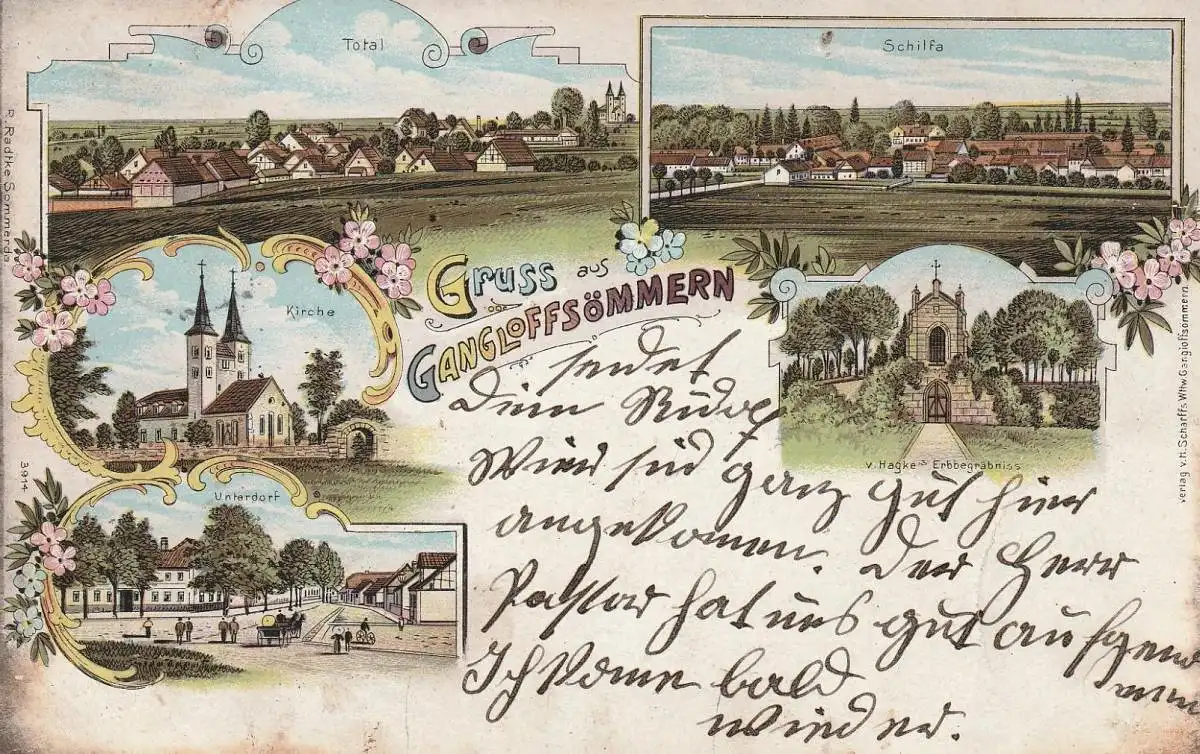 Total
Schilfa
P. Radtke Sömmerda
Kirche
Gruss aus
Gangloffsömmern
v. Hagke's Erbbegräbniss
Unterdorf
3914
Verlag v. H. Scharff's Wtw. Gangloffsömmern.
sendet
Dein
Wier sid ganz gut hier
angekomen. Der Herr
Pastor hat uns gut aufgenom
men
Ich kome bald
wieder.